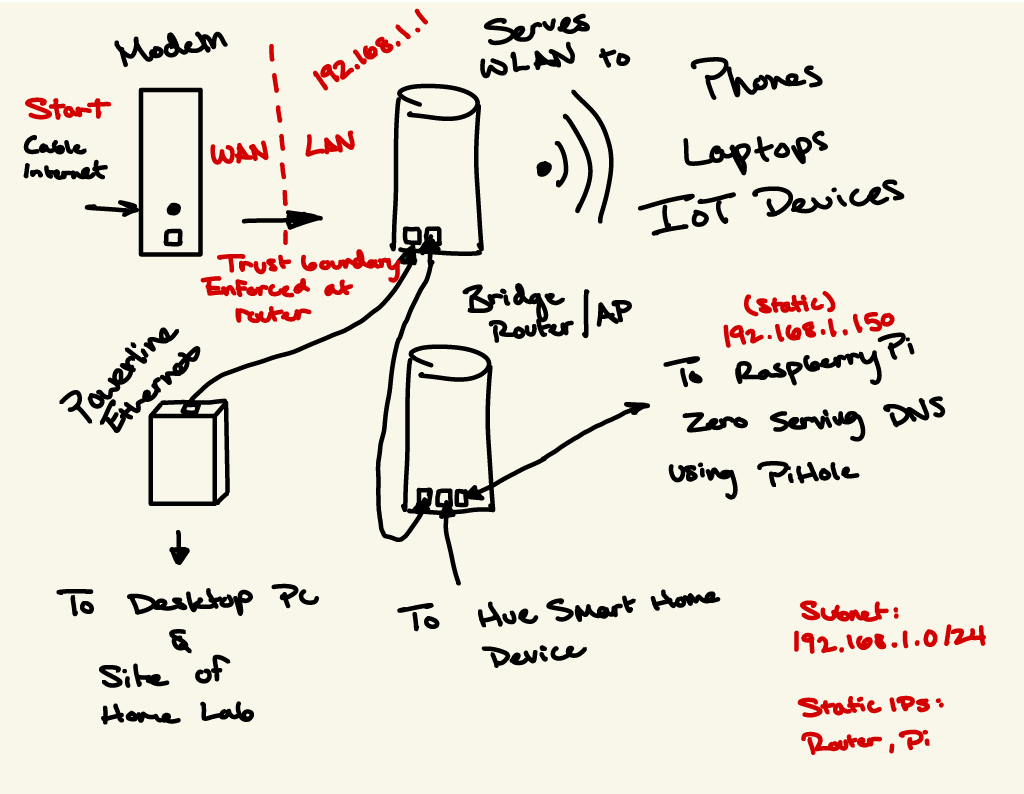 Modem
Start
Cable
Internet
WAN
LAN
192.168.1.1
Serves
WLAN to
Phones
Laptops
IoT Devices
Trust boundary
Enforced at
router
Powerline
Ethernet
Bridge
Router/AP
(Static)
192.168.1.150
To Raspberry Pi
Zero Serving DNS
using PiHole
To Desktop PC
&
Site of
Home Lab
To Hue Smart Home
Device
Subnet:
192.168.1.0/24
Static IPs:
Router, Pi